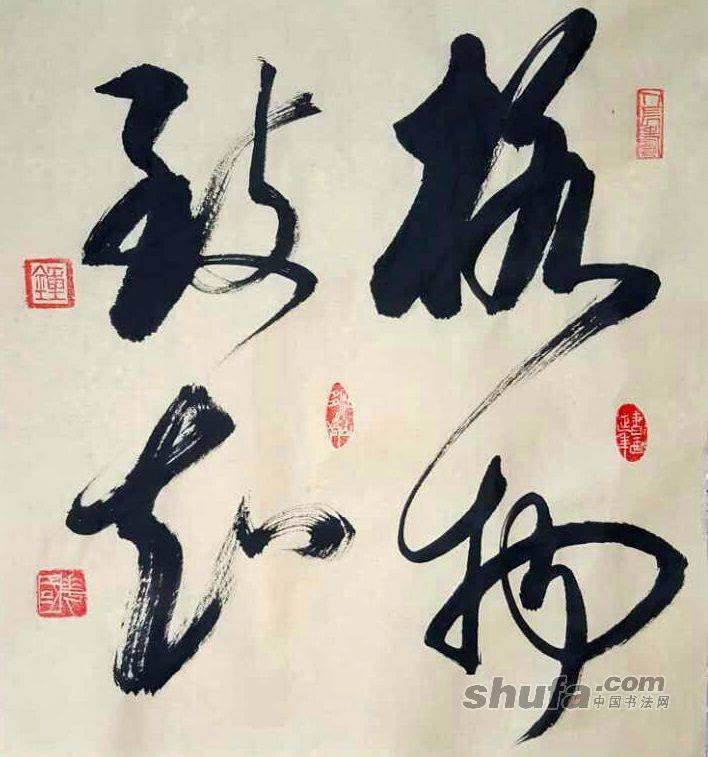 格物
致知
shufa.com
中国书法网